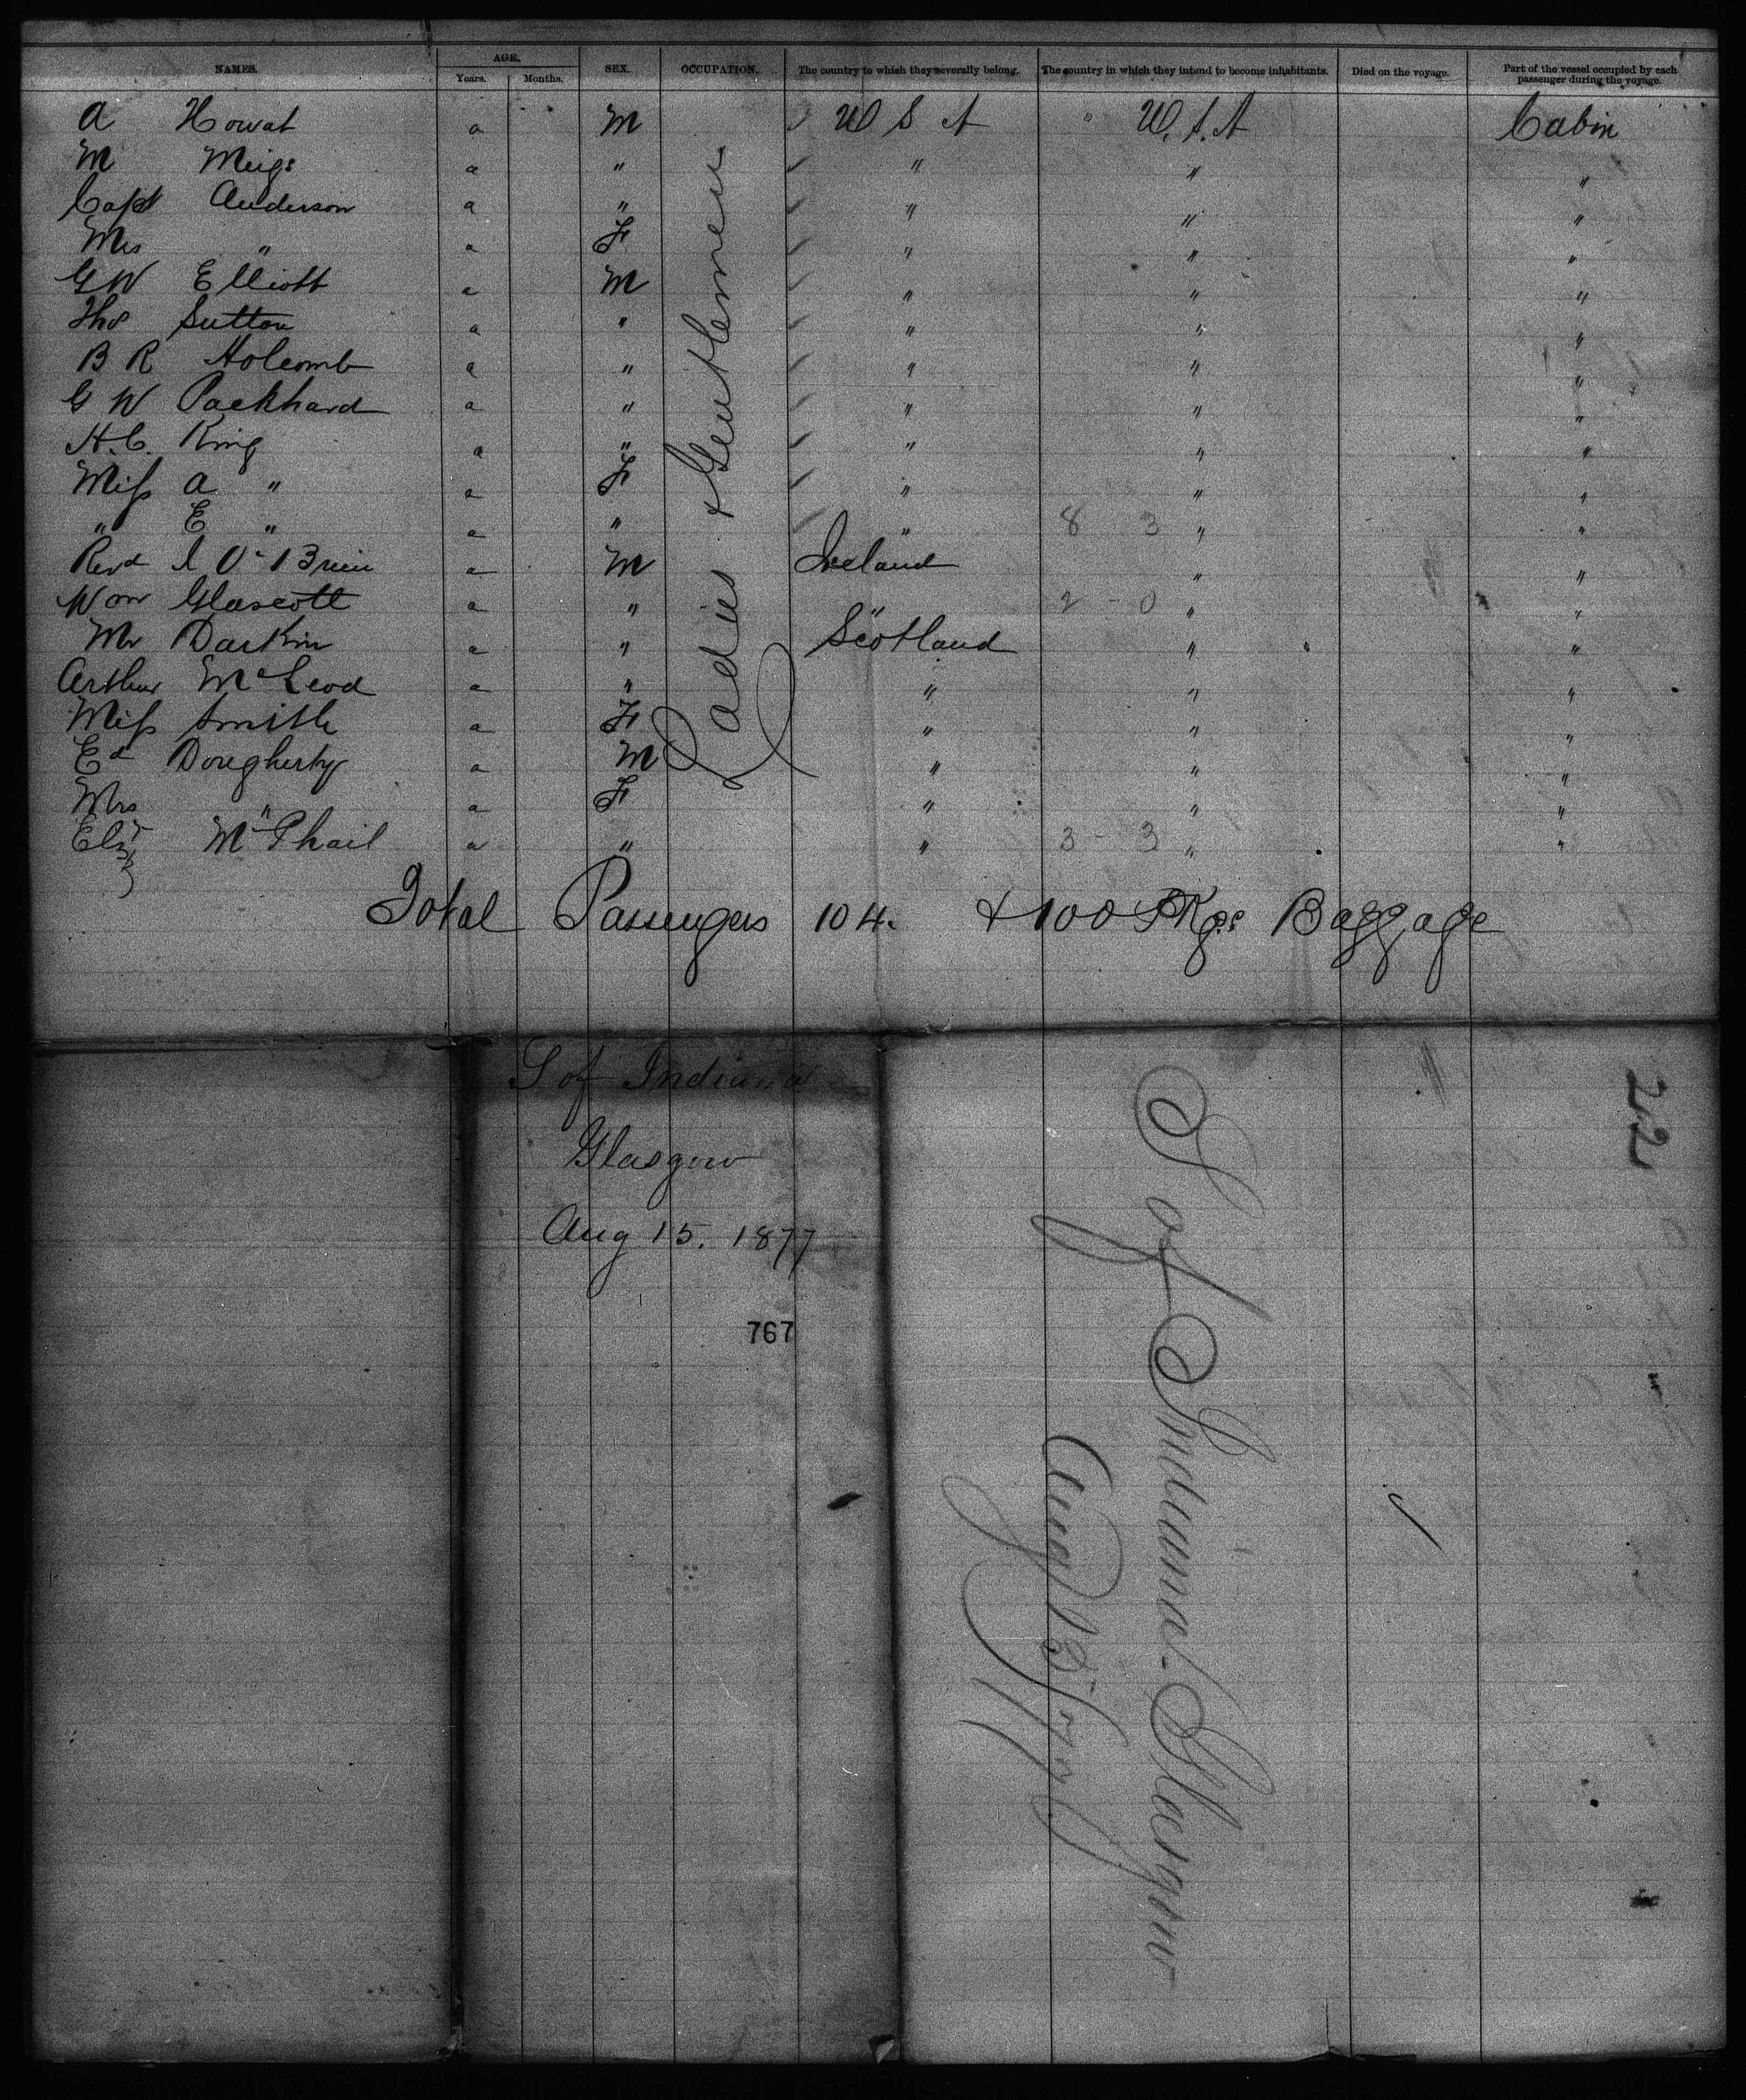 NAMES. AGE. Years. Months. SEX. OCCUPATION. The country to which they severally belong. The country in which they intend to become inhabitants. Died on the voyage. Part of the vessel occupied by each passenger during the voyage.
A Howat a M U S A " U.S.A Cabin
M Meigs a " " " "
Capt Anderson a " " " "
Mrs " a F " " "
G W Elliott a M " " "
Thos Sutton a " " " "
B R Holcomb a " " " "
G W Packhard a " " " "
H.C. King a " " " "
Miss A " a F " " "
" E " a " " 8 3 " "
Revd O'Brien a M Ireland " "
Wm Glascott a " " 2 - 0 " "
Mr Darkin a " Scotland " "
Arthur McLeod a " " " "
Miss Smith a F " " "
Ed Dougherty a M " " "
Mrs " a F " " "
Eliz McPhail a " " 3 - 3 " "
Ladies & Gentlemen
Total Passengers 104. & 100 Pkgs Baggage
S of Indiana
Glasgow
Aug 15. 1877
767
S of Indiana - Glasgow
Aug 15/77
22